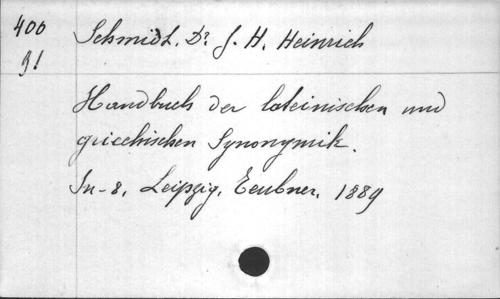 400
91
Schmidt. Dr J. H. Heinrich
Handbuch der lateinischen und
griechischen Synonymik.
In-8, Leipzig, Teubner, 1889